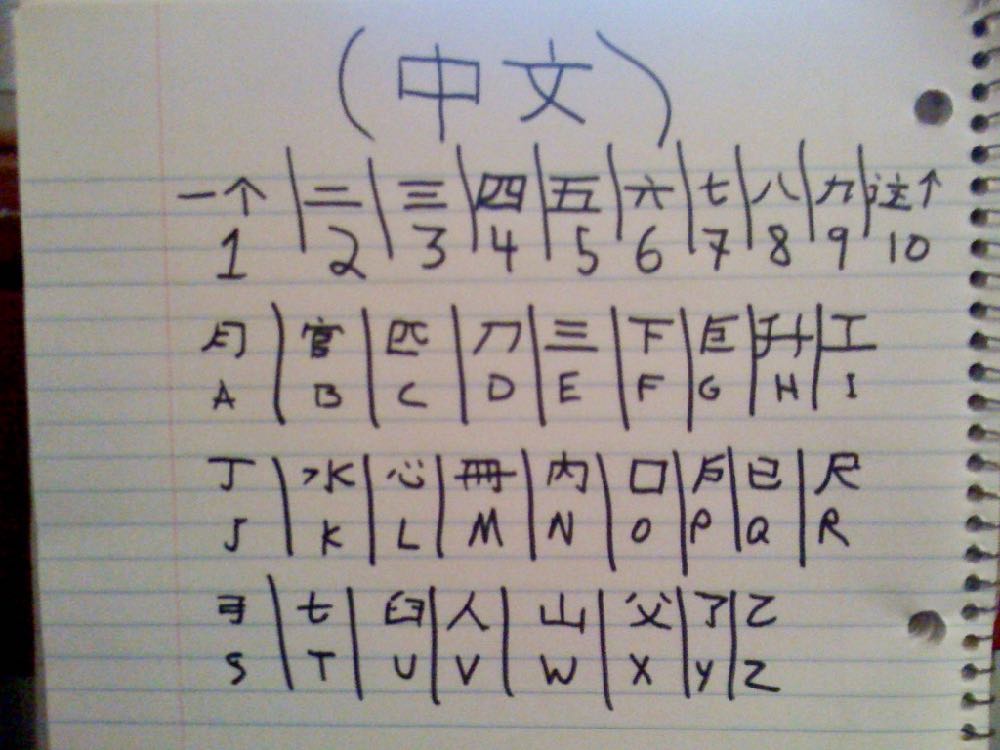 (中文)
一个 二 三 四 五 六 七 八 九 这个
1 2 3 4 5 6 7 8 9 10
月 官 匹 刀 三 下 巨 升 工
A B C D E F G H I
丁 水 心 冊 内 口 户 已 尺
J K L M N O P Q R
弓 七 臼 人 山 父 了 乙
S T U V W X Y Z